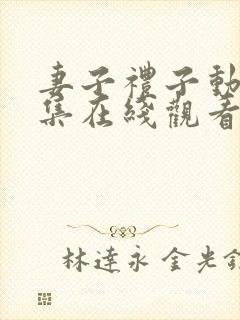 妻子禮子動
集在綫觀看
林達永 金光錦